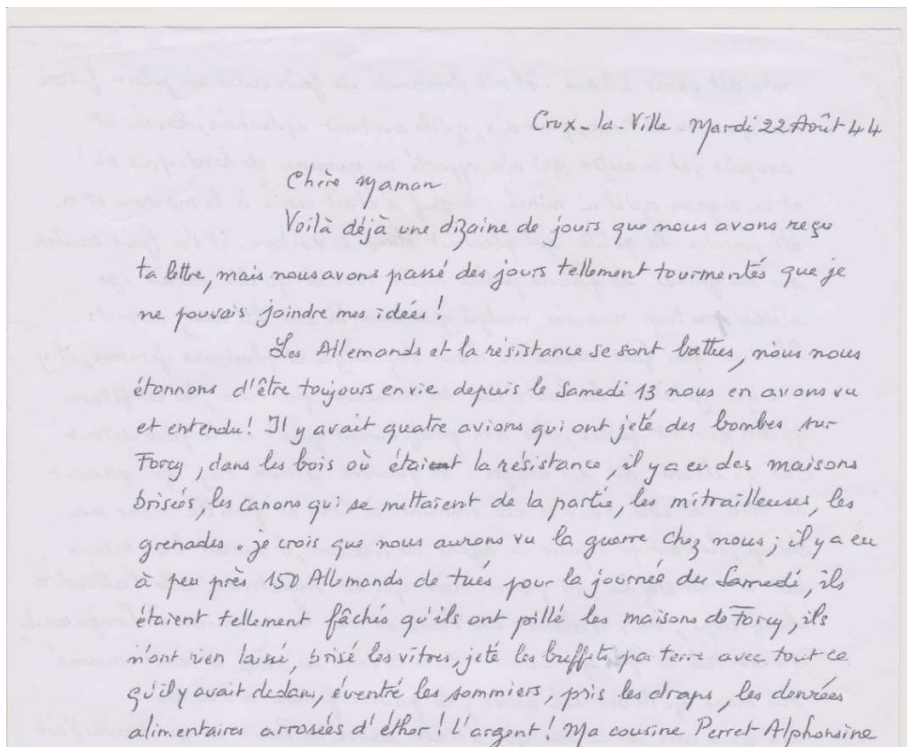 Crux-la-Ville Mardi 22 Août 44
Chère Maman
Voilà déjà une dizaine de jours que nous avons reçu
ta lettre, mais nous avons passé des jours tellement tourmentés que je
ne pouvais joindre mes idées !
Les Allemands et la résistance se sont battus, nous nous
étonnons d'être toujours en vie depuis le Samedi 13 nous en avons vu
et entendu ! Il y avait quatre avions qui ont jeté des bombes sur
Forcy, dans les bois où étaient la résistance, il y a eu des maisons
brisées, les canons qui se mettaient de la partie, les mitrailleuses, les
grenades. je crois que nous aurons vu la guerre chez nous ; il y a eu
à peu près 150 Allemands de tués pour la journée du Samedi, ils
étaient tellement fâchés qu'ils ont pillé les maisons de Forcy, ils
n'ont rien laissé, brisé les vitres, jeté les buffets par terre avec tout ce
qu'il y avait dedans, éventré les sommiers, pris les draps, les denrées
alimentaires arrosées d'éther ! l'argent ! Ma cousine Perret Alphonsine